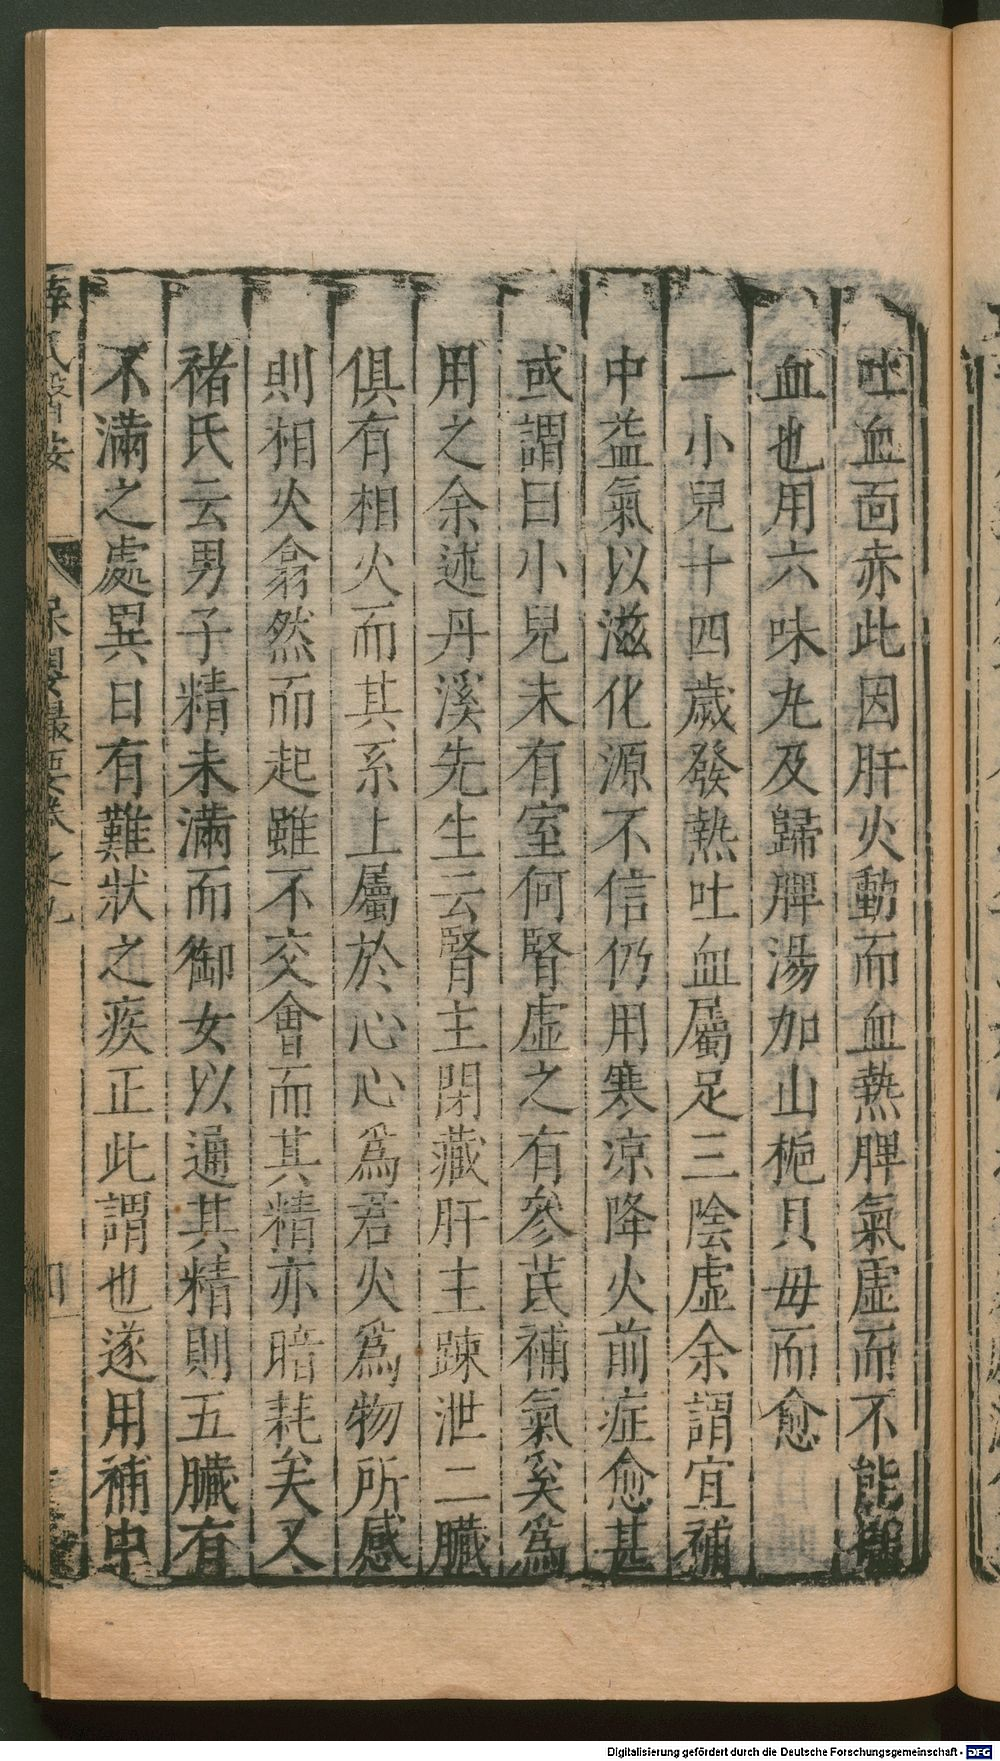 吐血面赤此因肝火動而血熱脾氣虛而不能攝
血也用六味丸及歸脾湯加山梔貝毋而愈
一小兒十四歲發熱吐血屬足三陰虛余謂宜補
中益氣以滋化源不信仍用寒凉降火前症愈甚
或謂曰小兒未有室何腎虛之有參芪補氣奚爲
用之余述丹溪先生云腎主閉藏肝主踈泄二臟
俱有相火而其系上屬於心心爲君火爲物所感
則相火翕然而起雖不交會而其精亦暗耗矣又
禇氏云男子精未滿而御女以通其精則五臟有
不滿之處異日有難狀之疾正此謂也遂用補中
薛氏醫按 保嬰撮要卷之九
Digitalisierung gefördert durch die Deutsche Forschungsgemeinschaft - DFG